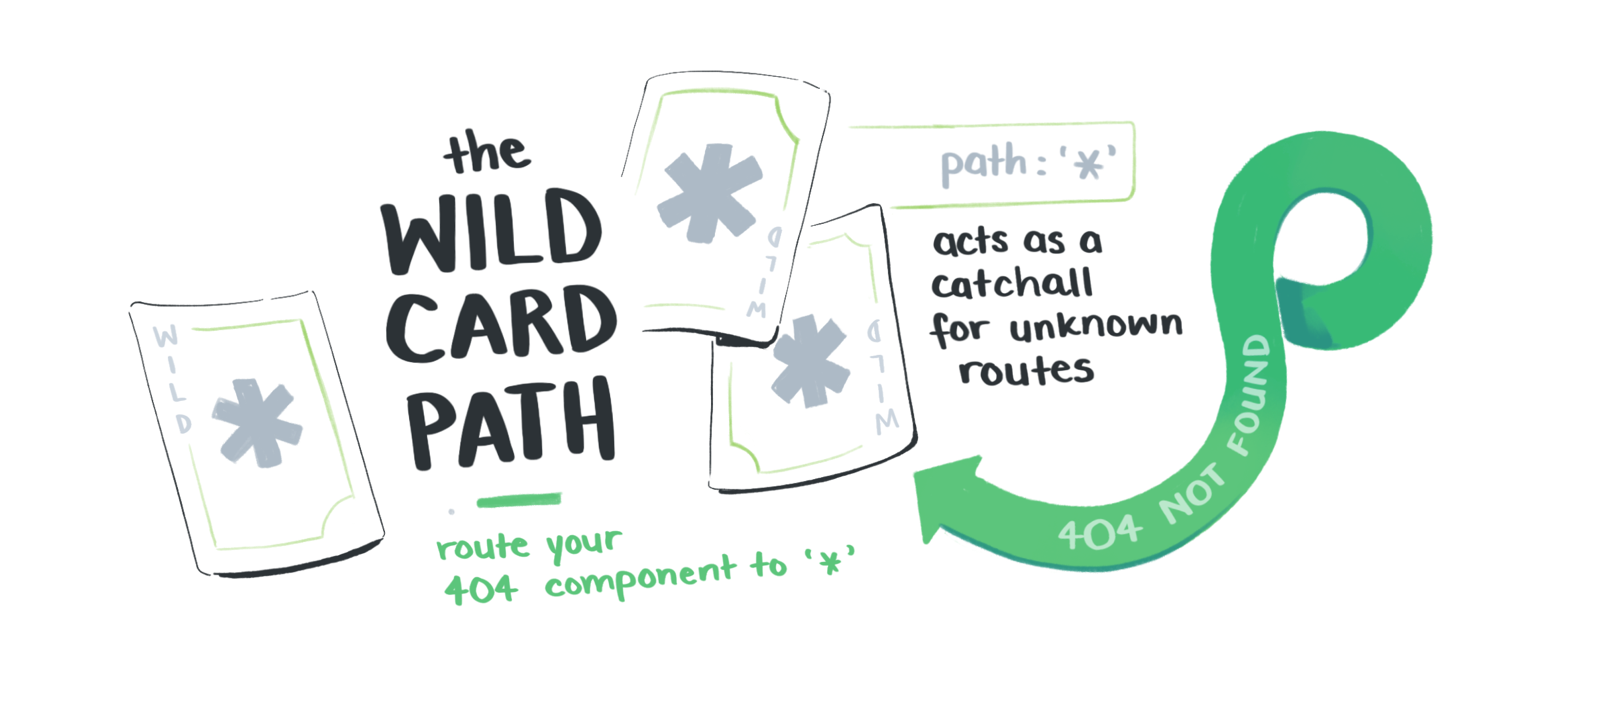 the
WILD
CARD
PATH
route your
404 component to '*'
WILD
WILD
WILD
path: '*'
acts as a
catchall
for unknown
routes
404 NOT FOUND